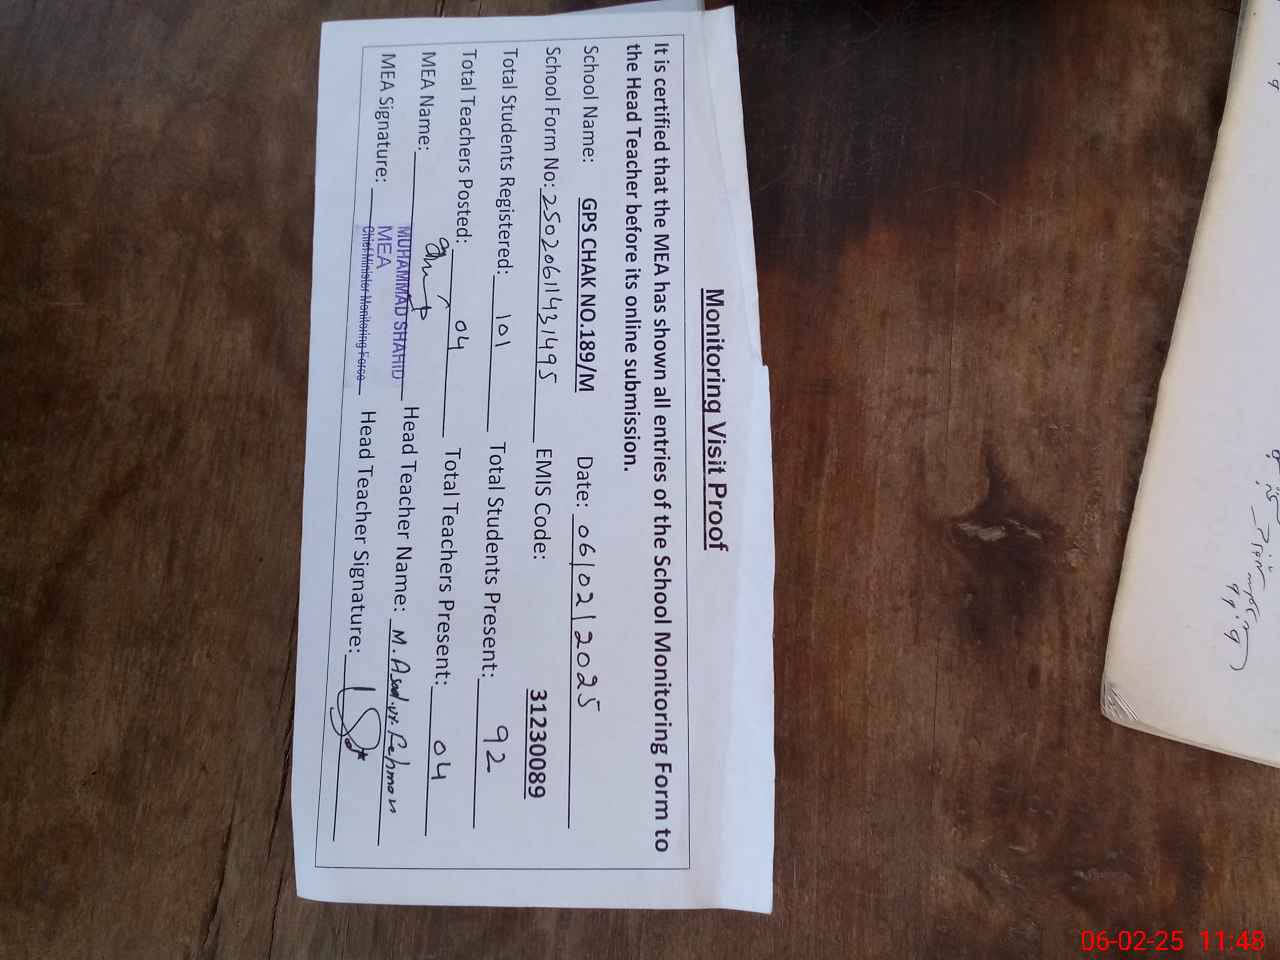 Monitoring Visit Proof
It is certified that the MEA has shown all entries of the School Monitoring Form to
the Head Teacher before its online submission.
School Name: GPS CHAK NO.189/M Date: 06/02/2025
School Form No: 25020611431495 EMIS Code: 31230089
Total Students Registered: 101 Total Students Present: 92
Total Teachers Posted: 04 Total Teachers Present: 04
MEA Name: MUHAMMAD SHAHID Head Teacher Name: M. Asad.ur.Rehman
MEA
MEA Signature: Chief Minister Monitoring Force Head Teacher Signature:
06-02-25 11:48